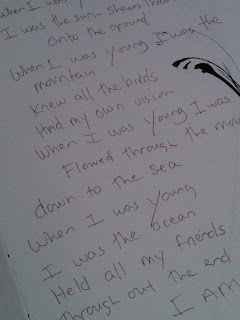 When I was y
I was the sun-shown throu
Onto the ground
When I was young I was the
mountain
Knew all the birds
Had my own vision
When I was young I was
Flowed through the mou
down to the sea
When I was young
I was the ocean
Held all my friends
through out the end
I AM